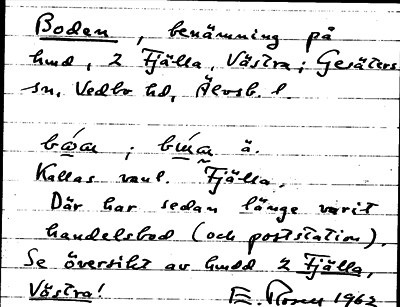 Boden, benämning på
hmd, 2 Fjälla, Västra; Gesäters
sn, Vedbo hd, Älvsb. l.
å.
Kallas vanl. Fjälla.
Där har sedan länge varit
handelsbod (och poststation).
Se översikt av hmdd 2 Fjälla,
Västra!
E. 1962